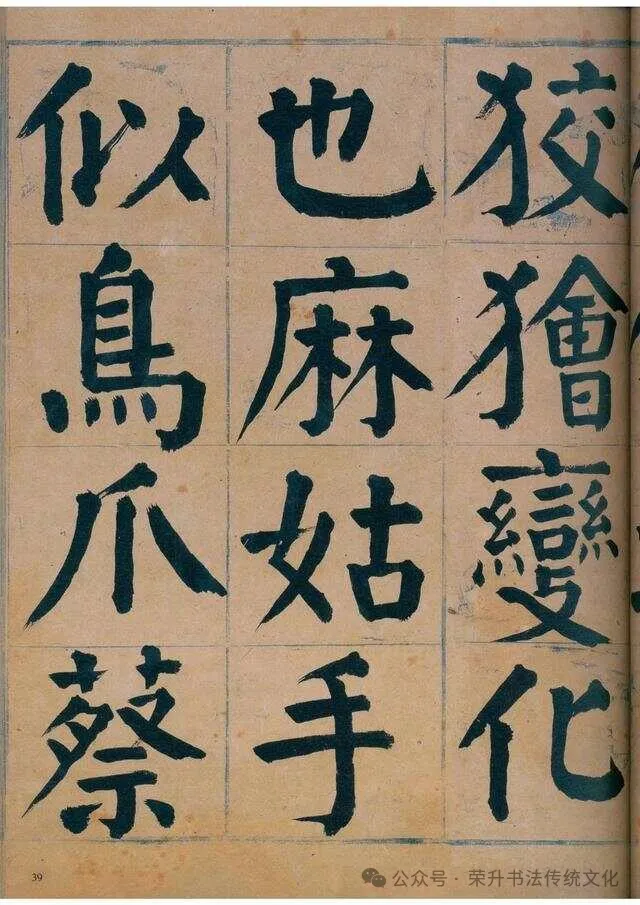 狡獪變化
也麻姑手
似鳥爪蔡
39
公众号 · 荣升书法传统文化